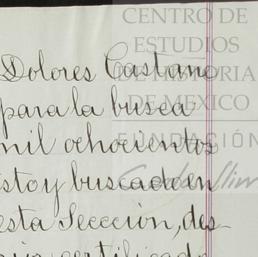 CENTRO DE
ESTUDIOS
DE HISTORIA
DE MEXICO
FUNDACIÓN
Carlos Slim
Dolores Castano
para la busca
mil ochocientos
estoy buscada en
esta Seccion, des
certificado